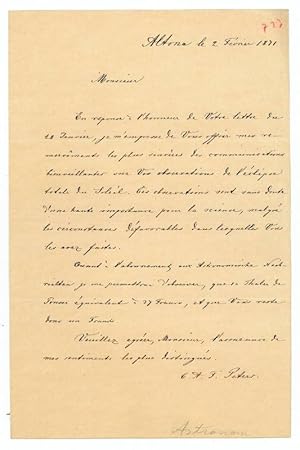 777
Altona le 2 Février 1871
Monsieur
En réponse à l'honneur de Vôtre lettre du
28 Janvier, je m'empresse de Vous offrir mes re-
mercîments les plus sincères des communications
bienveillantes sur Vos observations de l'éclipse
totale du Soleil. Ces observations sont sans doute
d'une haute importance pour la science, malgré
les circonstances défavorables dans lesquelles Vous
les avez faites.
Quant à l'abonnement aux Astronomische Nach-
richten je me permettrai d'observer, que le Thaler de
Prusse équivalent à 27 Francs, et que Vous reste
donc un Franc.
Veuillez agréer, Monsieur, l'assurance de
mes sentiments les plus distingués.
C. A. F. Peters.
Astronom